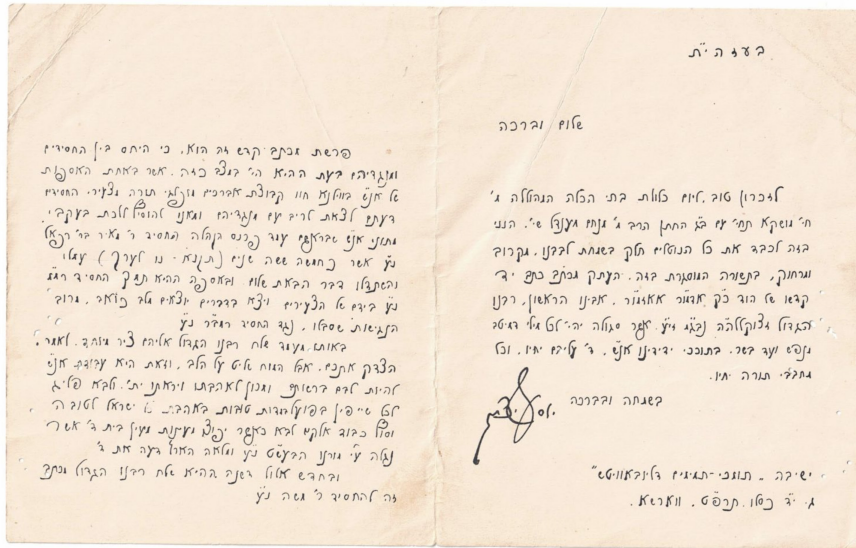 בעזה"ת
שלום וברכה
לזכרון טוב, ליום כלולת בתי הכלה המהוללה מ'
חי' מושקא תחי' עם ב"ג החתן הרב מ' מנחם מענדל שי', הנני
בזה לכבד את כל הנוטלים חלק בשמחת לבבנו, מקרוב
ומרחוק, בתשורה המוסגרת בזה. העתק מכתב כתב יד
קדשו של הוד כ"ק אדמו"ר אאזמו"ר, אבינו הראשון, רבנו
הגדול זצוקללה"ה נבג"מ זי"ע, אשר סגולה יהי' לכל מילי דמיטב
מנפש ועד בשר, בתוככי ידידינו אנ"ש, ד' עליהם יחיו, וכל
מחבבי תורה יחיו.
בשמחה ובברכה
ישיבה "תומכי-תמימים דליובאוויטש"
ג. י"ד כסלו, תרפ"ט, ווארשא.
פרשת מכתב קדש זה הוא, כי היחס בין החסידים
ומנגדיהם בעת ההיא הי' במצב כזה, אשר באחת האספות
של אנ"ש בווילנא חוו קבוצת אברכים מופלגי תורה מצעירי החסידים
דעתם לצאת לריב עם מנגדיהם ומאנו להוסיף ללכת בעקבי
מתוני אנ"ש שבראשם עמד פרנס הקהלה החסיד ר' מאיר בר' רפאל
נ"ע אשר כחמשה ששה שנים (תקנ"א - נו לערך) עמלו
והשתדלו דבר הבאת שלום ובאספה ההיא תמך החסיד רמ"מ
נ"ע בידם של הצעירים ויצא בדברים יוצאים מלב כואב, מרוב
הנגישות שסבלו, נגד החסיד רמב"ר נ"ע
באותו מעמד שלח רבנו הגדול אליהם ציר מיוחד, לאמר,
הצדק אתכם, אבל המוח שליט על הלב, וזאת היא עבודת אנ"ש
להיות לבם ברשותם ומכון לאהבתו ויראתו ית', ולבא פליג
לכל שייפין בפועל מדות טובות באהבת ישראל לטובה
כבוד אלקים לבא כאשר יפוצו מעינות מעין בית ד' אשר
נגלה ע"י מורנו הבעש"ט נ"ע ומלאה הארץ דעה את ד'
ובחדש אלול דשנה ההיא שלח רבנו הגדול מכתב
זה להחסיד ר' משה נ"ע